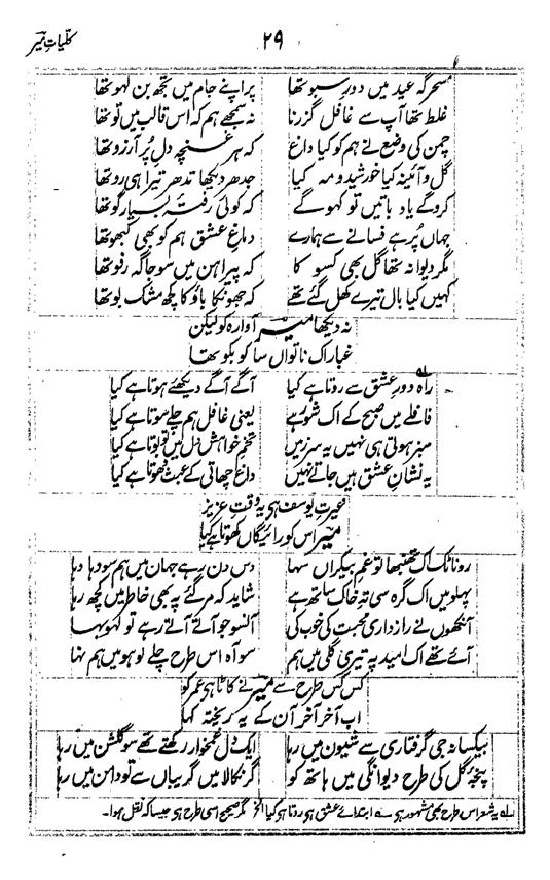 کلیاتِ میر
۲۹
سحر گہ عید میں دورِ سبو تھا پر اپنے جام میں تجھ بن لہو تھا
غلط تھا آپ سے غافل گزرنا نہ سمجھے ہم کہ اس قالب میں تو تھا
چمن کی وضع نے ہم کو کیا داغ کہ ہر غنچہ دلِ پُر آرزو تھا
گل و آئینہ کیا خورشید و مہ کیا جدھر دیکھا تدھر تیرا ہی رو تھا
کروگے یاد باتیں تو کہوگے کہ کوئی رفتۂ بسیار گو تھا
جہاں پُر ہے فسانے سے ہمارے دماغِ عشق ہم کو بھی کبھو تھا
مگر دیوانہ تھا گل بھی کسو کا کہ پیراہن میں سو جاگہ رفو تھا
کہیں کیا بال تیرے کھل گئے تھے کہ جھونکا باؤ کا کچھ مشک بو تھا
نہ دیکھا میرِ آوارہ کو لیکن
غبار اک ناتواں سا کو بکو تھا
راہِ دورِ عشق سے روتا ہے کیا آگے آگے دیکھئے ہوتا ہے کیا
قافلے میں صبح کے اک شور ہے یعنی غافل ہم چلے سوتا ہے کیا
سبز ہوتی ہی نہیں یہ سرزمیں تخمِ خواہش دل میں تو بوتا ہے کیا
یہ نشانِ عشق ہیں جاتے نہیں داغ چھاتی کے عبث دھوتا ہے کیا
غیرتِ یوسف ہی یہ وقتِ عزیز
میر اس کو رائیگاں کھوتا ہے کیا
رونا ٹک اک تھنبھا تو غمِ بیکراں سہا دس دن رہے جہان میں ہم سو دہا دہا
پہلو میں اک گرہ سی تہِ خاک ساتھ ہے شاید کہ مر گئے پہ بھی خاطر میں کچھ رہا
آنکھوں نے رازداری محبت کی خوب کی آنسو جو آتے آتے رہے تو لہو بہا
آئے تھے اک امید پہ تیری گلی میں ہم سو آہ اس طرح چلے لوہو میں ہم نہا
کس کس طرح سے میر نے کاٹا ہی عمر کو
اب آخر آخر آن کے یہ ریختہ کہا
بیکسانہ جی گرفتاری سے شیون میں رہا ایک دل غمخوار رکھتے تھے سو گلشن میں رہا
پنجۂ گل کی طرح دیوانگی میں ہاتھ کو گر نکالا میں گریباں سے تو دامن میں رہا
لہ یہ شعر اس طرح بھی مشہور ہے ؎ ابتدائے عشق ہی روتا ہو کیا الخ مگر صحیح اسی طرح ہی جیسا کہ نقل ہوا۔